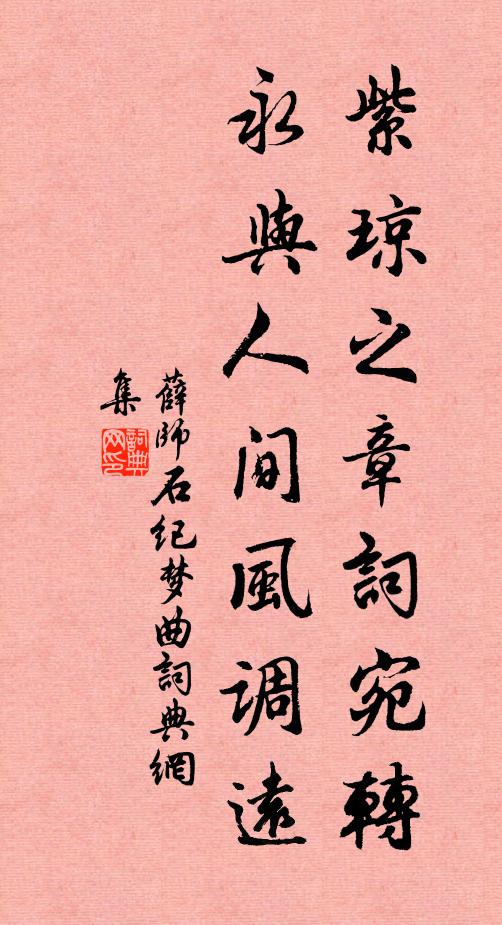 紫琼之章詞宛轉
永與人间風调遠
薛師石纪梦曲詞典網
集
詞典网印